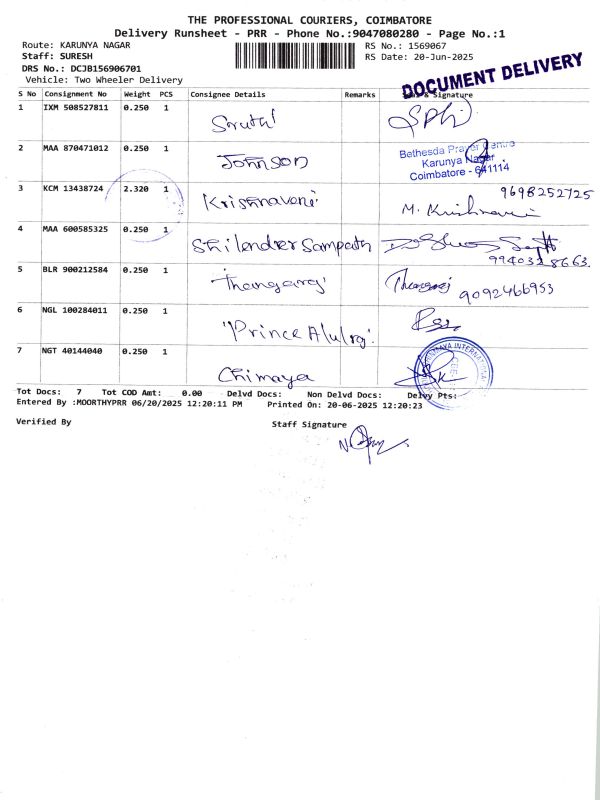 THE PROFESSIONAL COURIERS, COIMBATORE
Delivery Runsheet - PRR - Phone No.:9047080280 - Page No.:1
Route: KARUNYA NAGAR
RS No.: 1569067
Staff: SURESH
RS Date: 20-Jun-2025
DRS No.: DCJB156906701
Vehicle: Two Wheeler Delivery
DOCUMENT DELIVERY
S No Consignment No Weight PCS Consignee Details Remarks Signature
1 IXM 508527811 0.250 1 Sruthi
2 MAA 870471012 0.250 1 Johnson
Bethesda Prayer Centre
Karunya Nagar
Coimbatore - 641114
3 KCM 13438724 2.320 1 Krishnaveni 9698252725
M. Krishnaveni
4 MAA 600585325 0.250 1 Shilender Sampath
9940328663
5 BLR 900212584 0.250 1 Thangaraj Thangaraj 9092466953
6 NGL 100284011 0.250 1 Prince
7 NGT 40144040 0.250 1 Chimaya
INTERNATIONAL
Tot Docs: 7 Tot COD Amt: 0.00 Delvd Docs: Non Delvd Docs: Delvy Pts:
Entered By :MOORTHYPRR 06/20/2025 12:20:11 PM Printed On: 20-06-2025 12:20:23
Verified By
Staff Signature